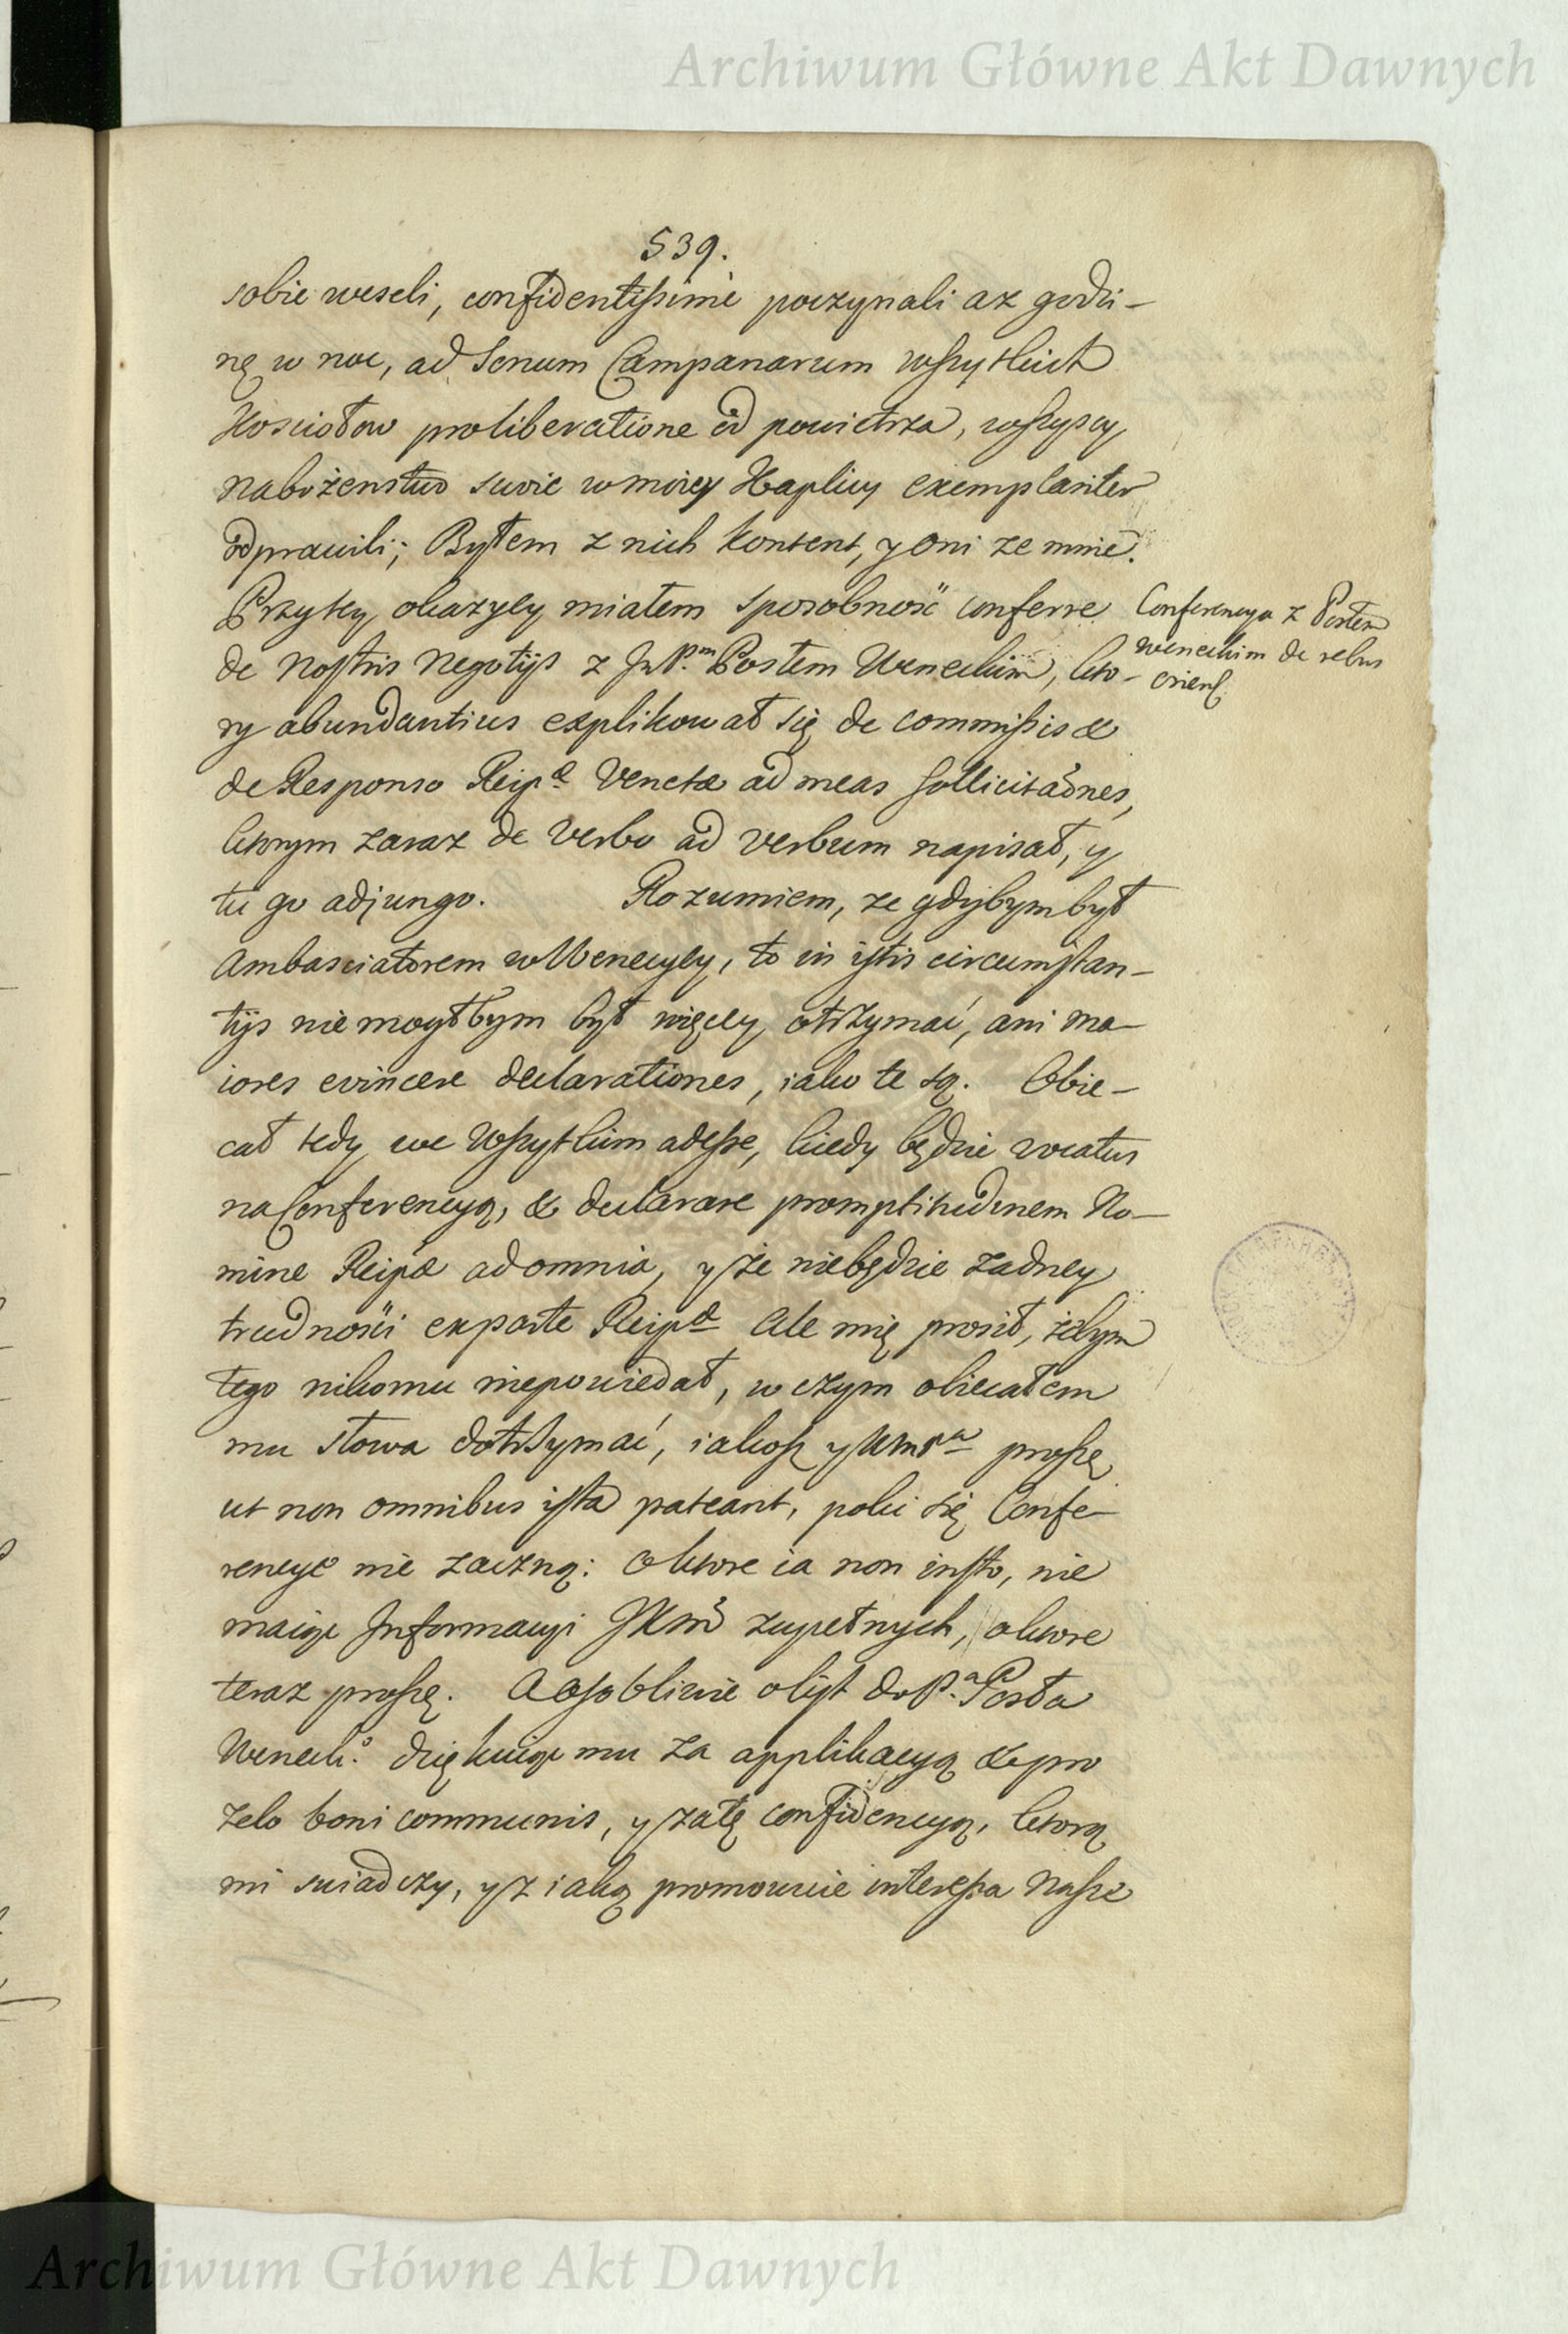 Archiwum Główne Akt Dawnych
539.
sobie weseli, confidentissimè poczynali az godzi-
nę w noc, ad Sonum Campanarum wszytkich
Kosciołow pro liberatione od powietrza, wszyscy
nabożenstwo swoie w moiey Kaplicy exemplariter
odprawili; Byłem z nich kontent, y oni ze mnie.
Przy tey okazyey miałem sposobność conferre
de Nostris Negotijs z Jm P.m Posłem Weneckim, kto-
ry abundantius explikował się de commissis &
de Responso Reip.æ Venetæ ad meas sollicitãones,
ktorym zaraz de Verbo ad verbum napisał, y
tu go adjungo. Rozumiem, ze gdybym był
Ambasciatorem w Wenecyey, to in istis circumstan-
tijs nie mogłbym był więcey otrzymać, ani ma-
iores evincere declarationes, iako te są. Obie-
cał tedy we wszytkim adesse, kiedy będzie vocatus
na Conferencyą, & declarare promptitudinem No-
mine Reipæ ad omnia, y że niebędzie zadney
trudności ex parte Reipæ Ale mię prosił, żebym
tego nikomu niepowiedał, w czym obiecałem
mu słowa dotrzymać, iakosz y Wmsci proszę
ut non omnibus ista pateant, poki się Confe-
rencye nie zaczną: o ktore ia non insto, nie
maiąc Informacyi JKm zupełnych, o ktore
teraz proszę. A osobliwie o list do P.a Posła
Weneck.o dziękuiąc mu za applikacyą & pro
zelo boni communis, y za tę confidencyą, ktorą
mi swiadczy, y z iaką promowuie interessa nasze
Conferencya z Posłem
weneckim de rebus
orient.
Archiwum Główne Akt Dawnych